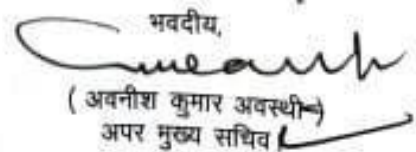 भवदीय,
( अवनीश कुमार अवस्थी )
अपर मुख्य सचिव